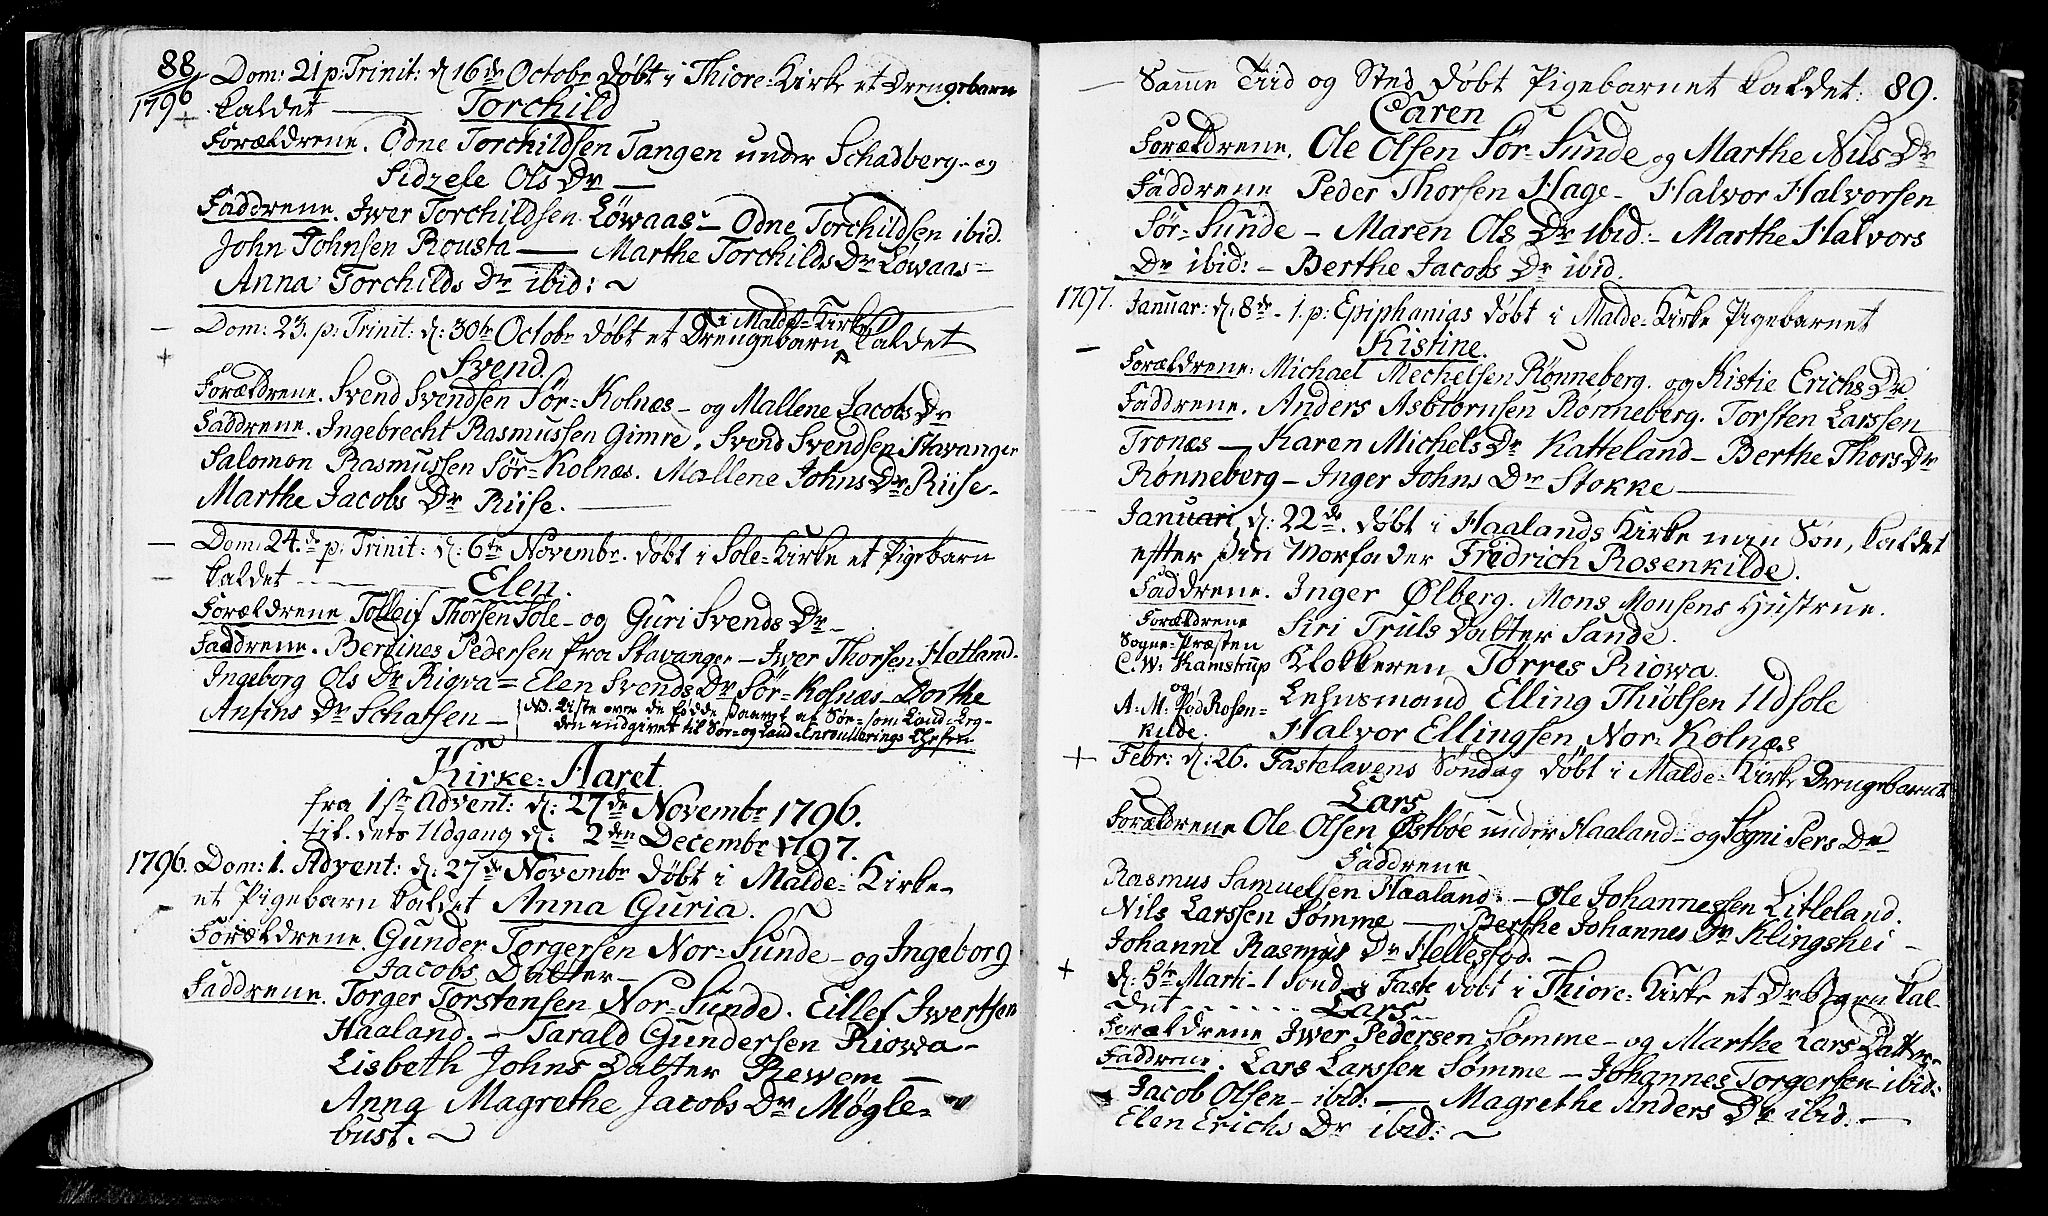 88
1796
Dom: 21 p: Trinit: d 16de Octobr døbt i Thiore-Kirke et Drengebarn
kaldet — Torchild
Forældrene. Odne Torchildsen Tangen under Schadberg- og
Sidzele Ols Dr —
Faddrene. Iwer Torchildsen Löwaas - Odne Torchildsen ibid.
John Johnsen Rousta — Marthe Torchilds Dr Löwaas =
Anna Torchilds Dr ibid: ~
Dom: 23. p: Trinit: d: 30te Octobr døbt et Drengebarn i Malde-Kirke kaldet
Svend.
Forældrene. Svend Svendsen Sør-Kolnæs - og Mallene Jacobs Dr
Faddrene. Ingebrecht Rasmussen Gimre. Svend Svendsen Stavanger
Salomon Rasmussen Sør-Kolnæs. Mallene Johns Dr Riise.
Marthe Jacobs Dr Riise. —
Dom: 24.de p: Trinit: d: 6te Novembr. døbt i Sole-Kirke et Pigebarn
kaldet — Elen
Forældrene Tolleif Thorsen Sole - og Guri Svends Dr —
Faddrene. Berdines Pedersen fra Stavanger - Iwer Thorsen Hetland.
Ingeborg Ols Dr Rigva = Elen Svends Dr Sør-Kolnæs - Dorthe
Ansins Dr Schatsen —
NB. Liste over de fødde saavel af Sør- som Land-Leg-
den indgivet til Sør- og Land-Enroullerings Chefen
Kirke-Aaret
fra 1ste Advent: d: 27de Novembr 1796.
til dets Udgang d: 2den Decembr 1797.
1796. Dom: 1. Advent: d: 27de Novembr døbt i Malde-Kirke
et Pigebarn kaldet Anna Guria. ~
Forældrene. Gunder Torgersen Nor-Sunde - og Ingeborg
Jacobs Datter —
Faddrene. Torger Torstensen Nor-Sunde. Eillef Iwertsen
Haaland. - Tarald Gundersen Riowa -
Lisbeth Johns Datter Rewem —
Anna Magrethe Jacobs Dr Møgle-
bust. ~
— Samme Tiid og Sted døbt Pigebarnet kaldet: 89.
Caren
Forældrene. Ole Olsen Sør-Sunde og Marthe Nils Dr
Faddrene Peder Thorsen Hage - Halvor Halvorsen
Sør-Sunde - Maren Ols Dr ibid - Marthe Halvors
Dr ibid: - Berthe Jacobs Dr ibid.
1797. Januar: d: 8de - 1. p: Epiphanias døbt i Malde-Kirke Pigebarnet
Kistine.
Forældrene: Michael Mechelsen Rønneberg. og Kistie Erichs Dr
Faddrene. Anders Asbiörnsen Rønneberg. Torsten Larssen
Tronæs — Karen Michels Dr Katteland - Berthe Thors Dr
Rønneberg - Inger Johns Dr Stokke —
Januari d: 22de. døbt i Haalands Kirke min Søn, kaldet
efter sin Morfader Fridrich Rosenkilde.
Faddrene. Inger Ølberg. Mons Monsens Hustrue.
Forældrene
Sogne-Præsten
C. W. Kamstrup
og
A. M. Fød Rosen=
kilde.
Siri Truls Datter Sande.
Klokkeren Tørres Riowa.
Lehnsmand Elling Thiölsen Udsole
Halvor Ellingsen Nor-Kolnæs
Febr: d: 26. Fastelavens Søndag døbt i Malde-Kirke Drengebarnet
Lars
Forældrene Ole Olsen Østbøe under Haaland - og Sogni Pers Dr
Faddrene
Rasmus Samuelsen Haaland. - Ole Johannessen Litleland.
Nils Larssen Sømme — Berthe Johannes Dr Klingshei -
Johanne Rasmus Dr Hellesfod. —
d: 5te Marti - 1 Sond. i Faste døbt i Thiore-Kirke et Dr Bgen kal-
det - - - - - Lars -
Forældrene Iwer Pedersen Somme - og Marthe Lars Datter
Faddrene. Lars Larssen Sømme - Johannes Torgersen ibid:
Jacob Olsen - ibid: — Magrethe Anders Dr ibid. —
Elen Erichs Dr ibid: ~